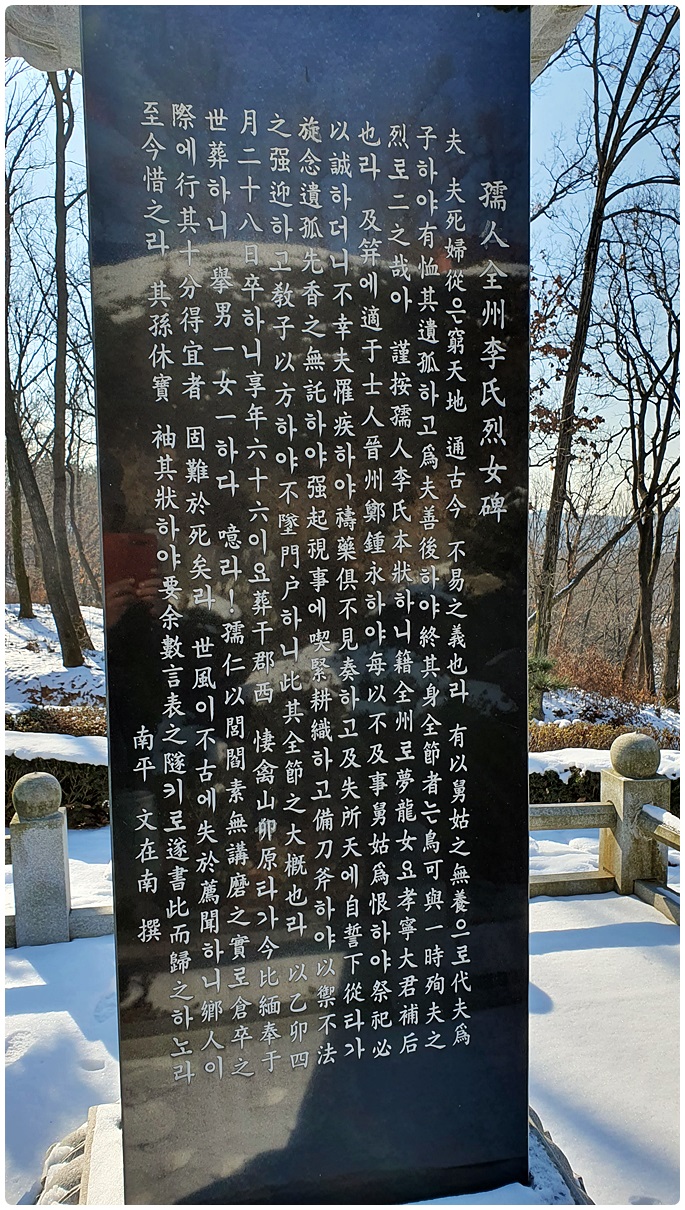 孺人全州李氏烈女碑
夫 夫死婦從은窮天地 通古今 不易之義也라 有以舅姑之無養으로代夫爲
子하야有恤其遺孤하고爲夫善後하야終其身全節者는鳥可與一時殉夫之
烈로二之哉아 謹按孺人李氏本狀하니籍全州로夢龍女요孝寧大君補后
也라 及笄에適于士人晉州鄭鍾永하야每以不及事舅姑爲恨하야祭祀必
以誠하더니不幸夫罹疾하야禱藥俱不見奏하고及失所天에自誓下從타가
旋念遺孤先香之無託하야强起視事에喫緊耕織하고備刀斧하야以禦不法
之强迎하고敎子以方하야不墜門户하니此其全節之大槪也라 以乙卯四
月二十八日卒하니享年六十六이요葬干郡西 悽禽山卯原타가今比緬奉于
世葬하니 擧男一女一하다 噫라!孺仁以閭閻素無講磨之實로倉卒之
際에行其十分得宜者 固難於死矣라 世風이不古에失於薦聞하니鄕人이
至今惜之라 其孫休寶 袖其狀하야要余數言表之隧키로遂書此而歸之하노라
南平 文在南 撰